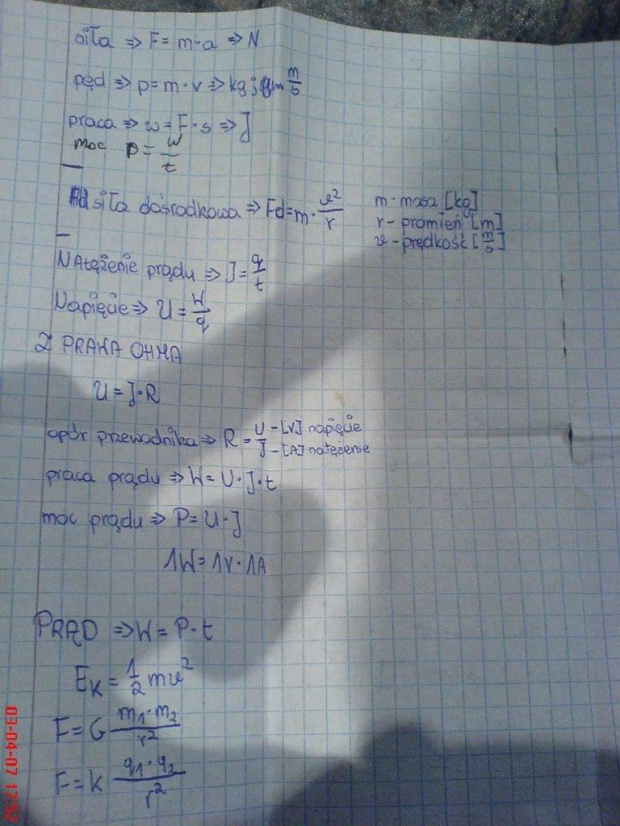 siła => F = m·a => N
pęd => p = m·v => kg m/s
praca => w = F·s => J
moc p = w/t
siła dośrodkowa => Fd = m·v²/r
m - masa [kg]
r - promień [m]
v - prędkość [m/s]
NAtężenie prądu => J = q/t
Napięcie => U = W/q
Z PRAWA OHMA
U = J·R
opór przewodnika => R = U/J
U - [V] napięcie
J - [A] natężenie
praca prądu => W = U·J·t
moc prądu => P = U·J
1W = 1V·1A
PRĄD => W = P·t
EK = 1/2 mv²
F = G m1·m2/r²
F = K q1·q2/r²
03-04-07 17:52